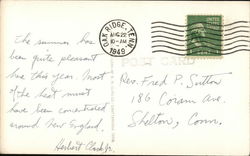 OAK RIDGE, TENN.
AUG 22
10-AM
1949
POST CARD
The summer has
been quite pleasant
here this year. Most
of the heat must
have been concentrated
around New England.
Herbert Clark Jr.
Rev. Fred P. Sutton
186 Coram Ave.
Shelton, Conn.